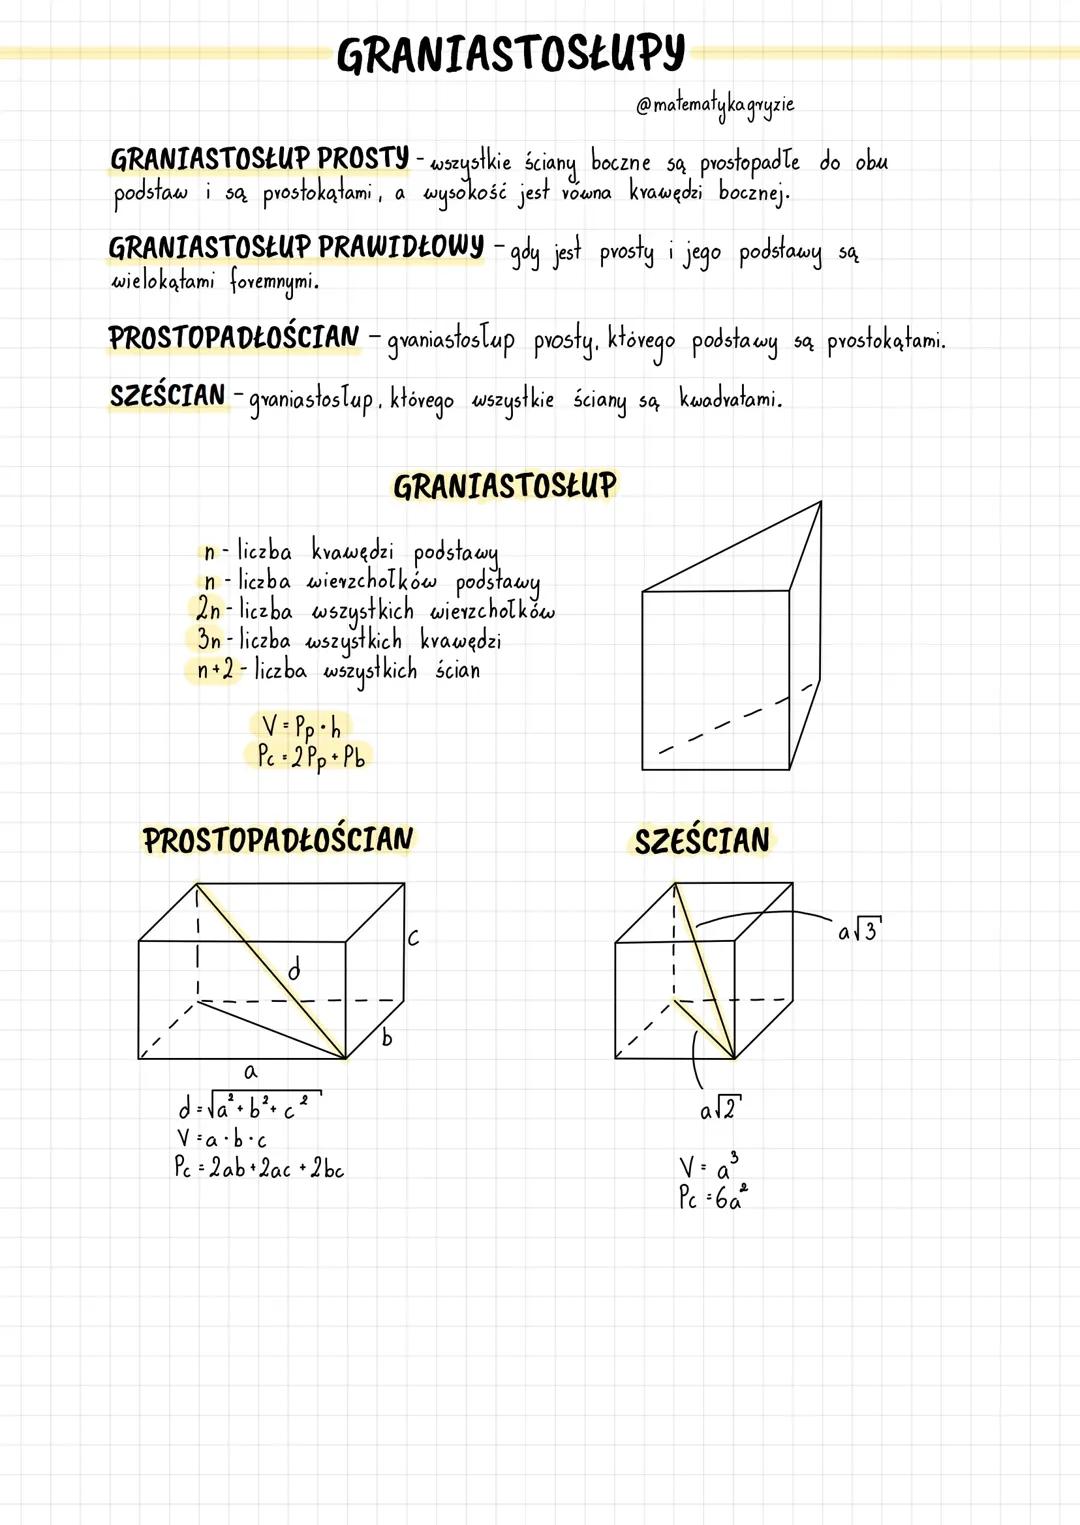 GRANIASTOSŁUPY
@matematykagryzie
GRANIASTOSŁUP PROSTY - wszystkie ściany boczne są prostopadłe do obu
podstaw i są prostokątami, a wysokość jest równa krawędzi bocznej.
GRANIASTOSŁUP PRAWIDŁOWY - gdy jest prosty i jego podstawy są
wielokątami foremnymi.
PROSTOPADŁOŚCIAN - graniastosłup prosty, którego podstawy są prostokątami.
SZEŚCIAN - graniastosłup, którego wszystkie ściany są kwadratami.
GRANIASTOSŁUP
n - liczba krawędzi podstawy
n - liczba wierzchołków podstawy
2n - liczba wszystkich wierzchołków
3n - liczba wszystkich krawędzi
n+2 - liczba wszystkich ścian
V = Pp · h
Pc = 2Pp + Pb
PROSTOPADŁOŚCIAN
c
d
b
a
d = √a² + b² + c²
V = a · b · c
Pc = 2ab + 2ac + 2bc
SZEŚCIAN
a√3
a√2
V = a³
Pc = 6a²